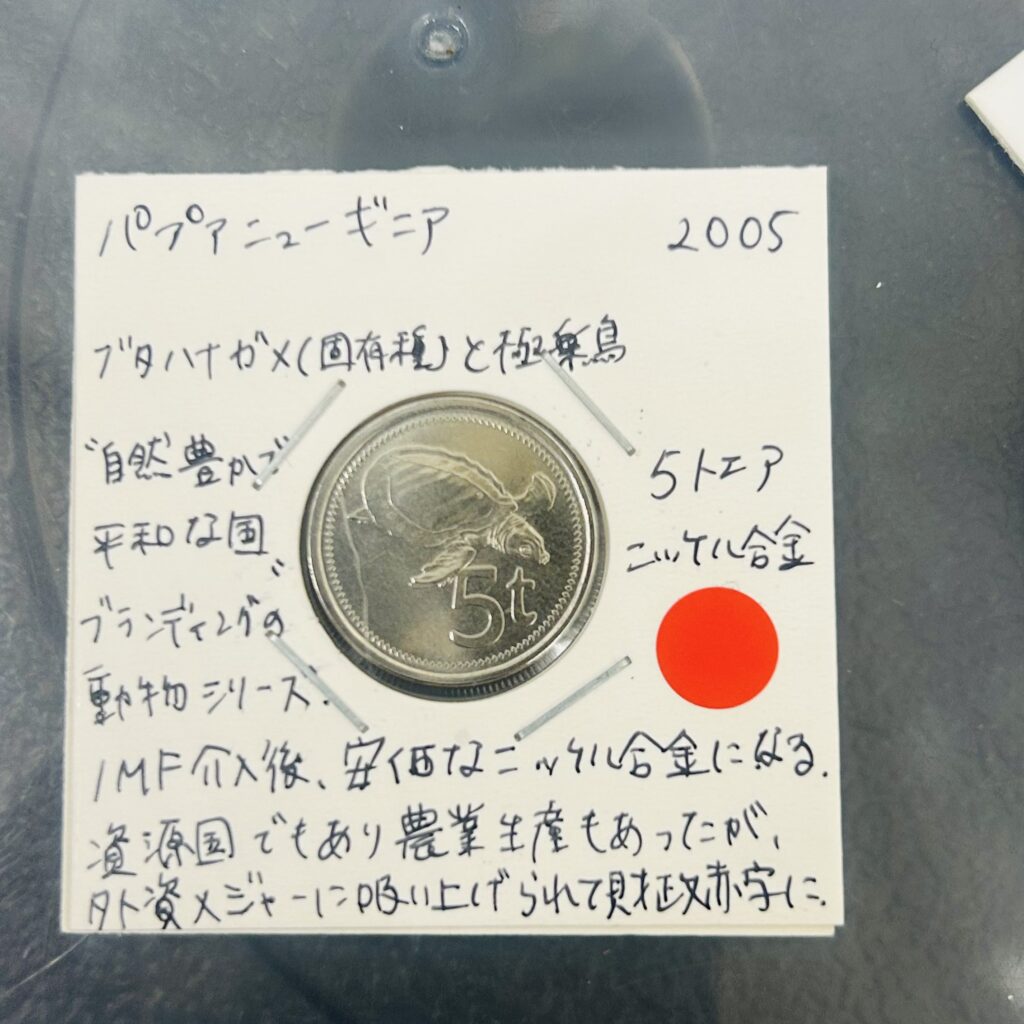 パプアニューギニア 2005
ブタハナガメ(固有種)と極楽鳥
"自然豊かで
平和な国"
ブランディングの
動物シリーズ.
5トエア
ニッケル合金
5t
IMF介入後、安価なニッケル合金になる.
資源国でもあり農業生産もあったが、
外資メジャーに吸い上げられて財政赤字に.